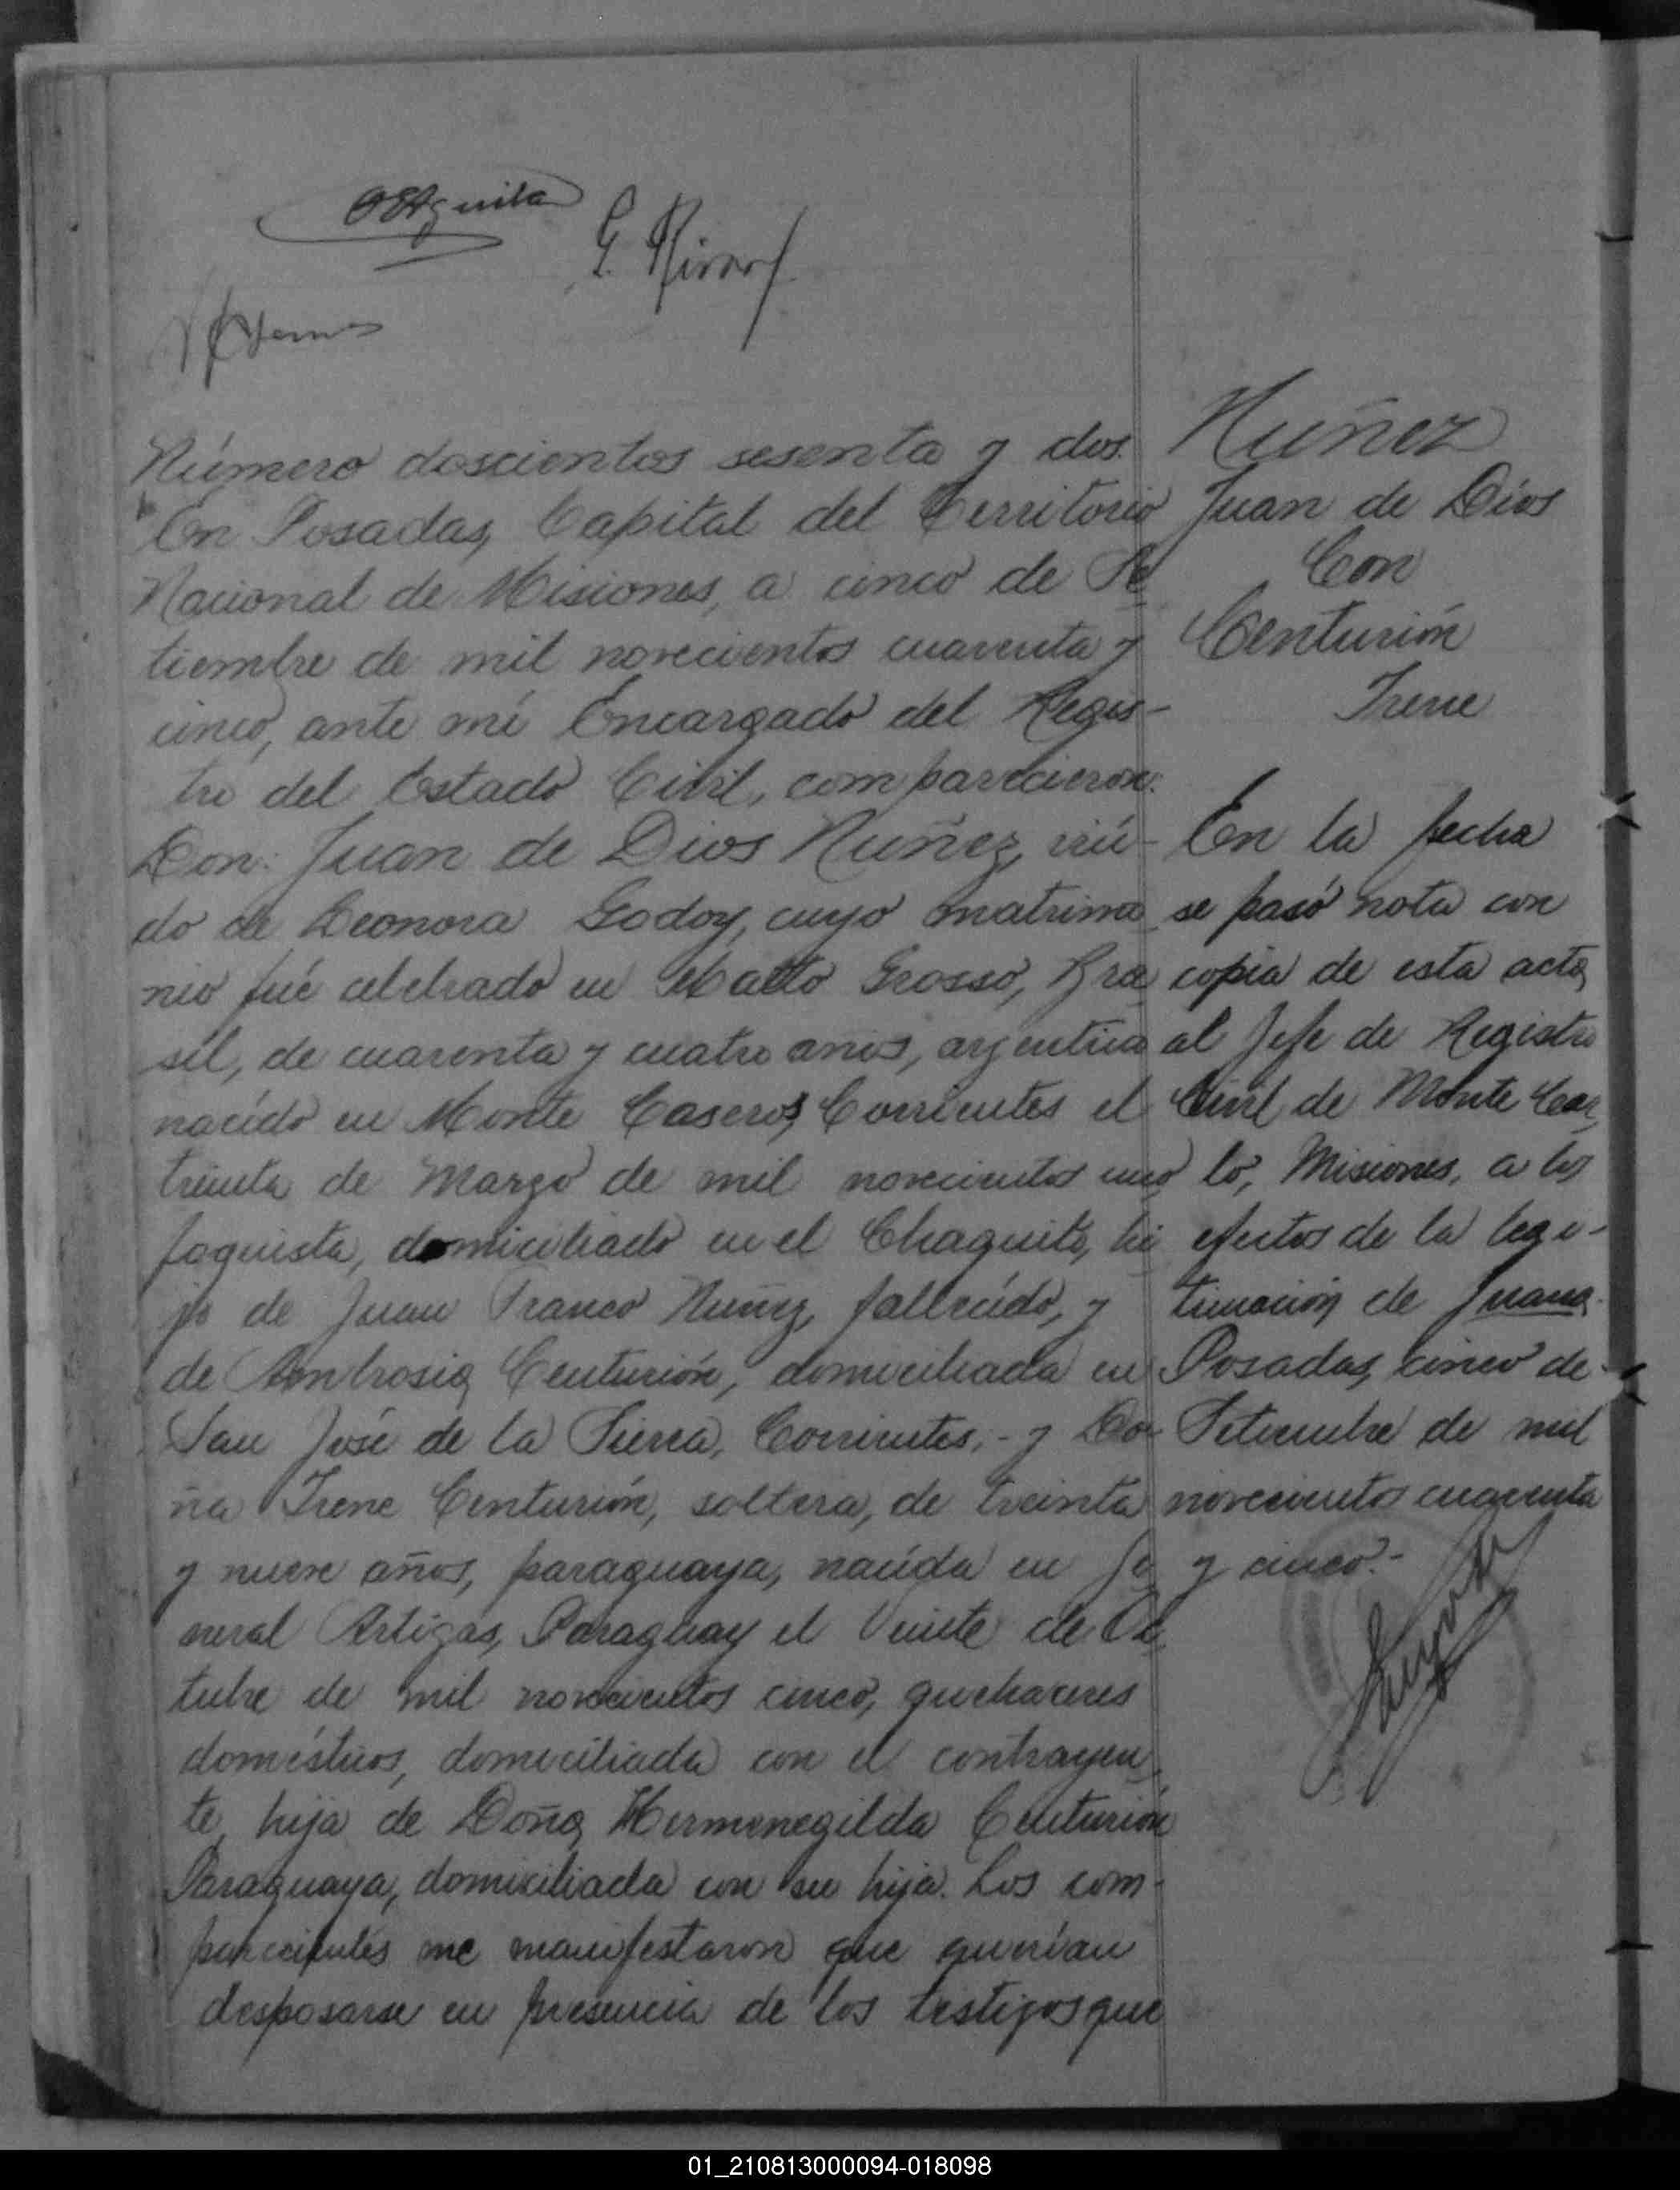 Número doscientos sesenta y dos.
En Posadas, Capital del Territorio
Nacional de Misiones, a cinco de Se
tiembre de mil novecientos cuarenta y
cinco, ante mí Encargado del Regis-
tro del Estado Civil, comparecieron:
Don: Juan de Dios Nuñez, viú-
do de Leonora Godoy, cuyo matrimo
nio fué celebrado en Matto Grosso, Bra
sil, de cuarenta y cuatro años, argentino
nacido en Monte Caseros, Corrientes el
treinta de Marzo de mil novecientos uno
foguista, domiciliado en el Chaquito, hi
jo de Juan Franco Nuñez, fallecido, y
de Ambrosia Centurión, domiciliada en
San José de la Sierra, Corrientes, - y Do-
ña Irene Centurión, soltera, de treinta
y nueve años, paraguaya, nacida en Ge
neral Artigas, Paraguay el Veinte de Oc
tubre de mil novecientos cinco, quehaceres
domésticos, domiciliada con el contrayen
te, hija de Doña Hermenegilda Centurión
Paraguaya, domiciliada con su hija. Los com-
parecientes me manifestaron que querían
desposarse en presencia de los testigos que
Nuñez
Juan de Dios
Con
Centurión
Irene
En la fecha
se pasó nota con
copia de esta acta,
al Jefe de Registro
Civil de Monte Car
lo, Misiones, a los
efectos de la legi-
timación de Juana.
Posadas, cinco de
Setiembre de mil
novecientos cuarenta
y cinco.-
01_210813000094-018098